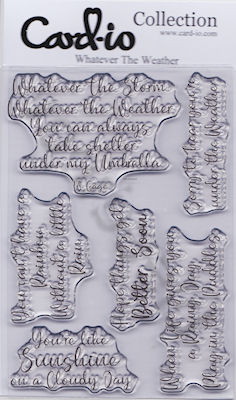 Card-io
Collection
www.card-io.com
Whatever The Weather
Whatever the Storm
Whatever the Weather
You can always
take shelter
under my Umbrella
S. Gage
Sorry to hear you're
under the Weather
You can't have a
Rainbow
Without a little
Rain
Hope things get
Better Soon
When life gives you
a Rainy Day
Play in the Puddles
You're like
Sunshine
on a Cloudy Day